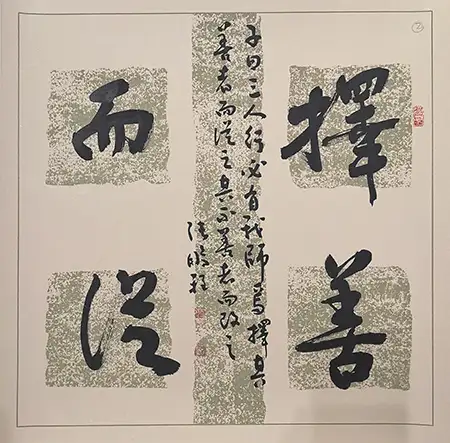 擇善
子曰三人行必有我師焉擇其
善者而從之其不善者而改之
而從